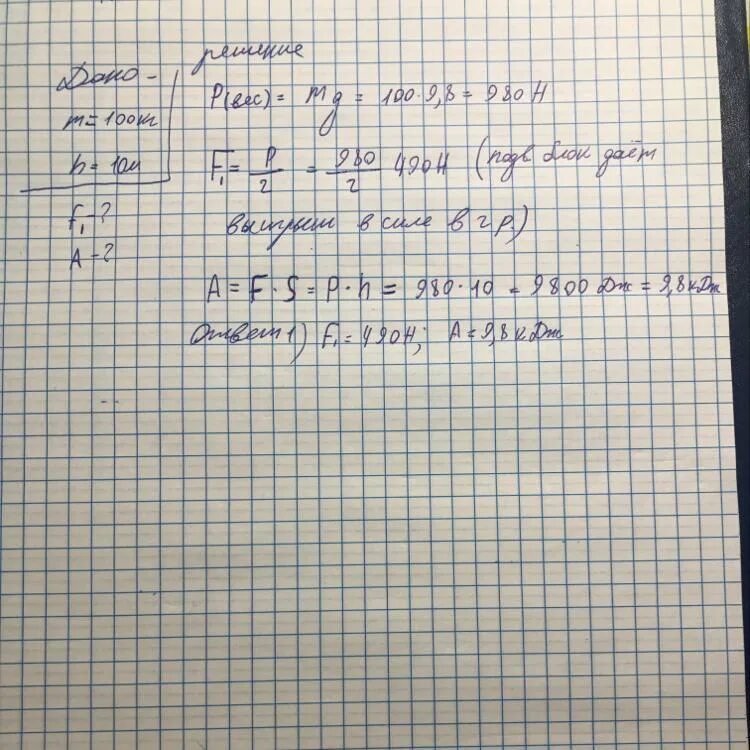 решение
Дано -
m = 100кг
h = 10м
F₁ - ?
A - ?
P(вес) = mg = 100·9,8 = 980 Н
F₁ = P/2 = 980/2 490Н (подв блок даёт
выигрыш в силе в 2 р.)
A = F·S = P·h = 980·10 = 9800 Дж = 9,8 кДж
Ответ 1) F₁ = 490Н; A = 9,8 кДж